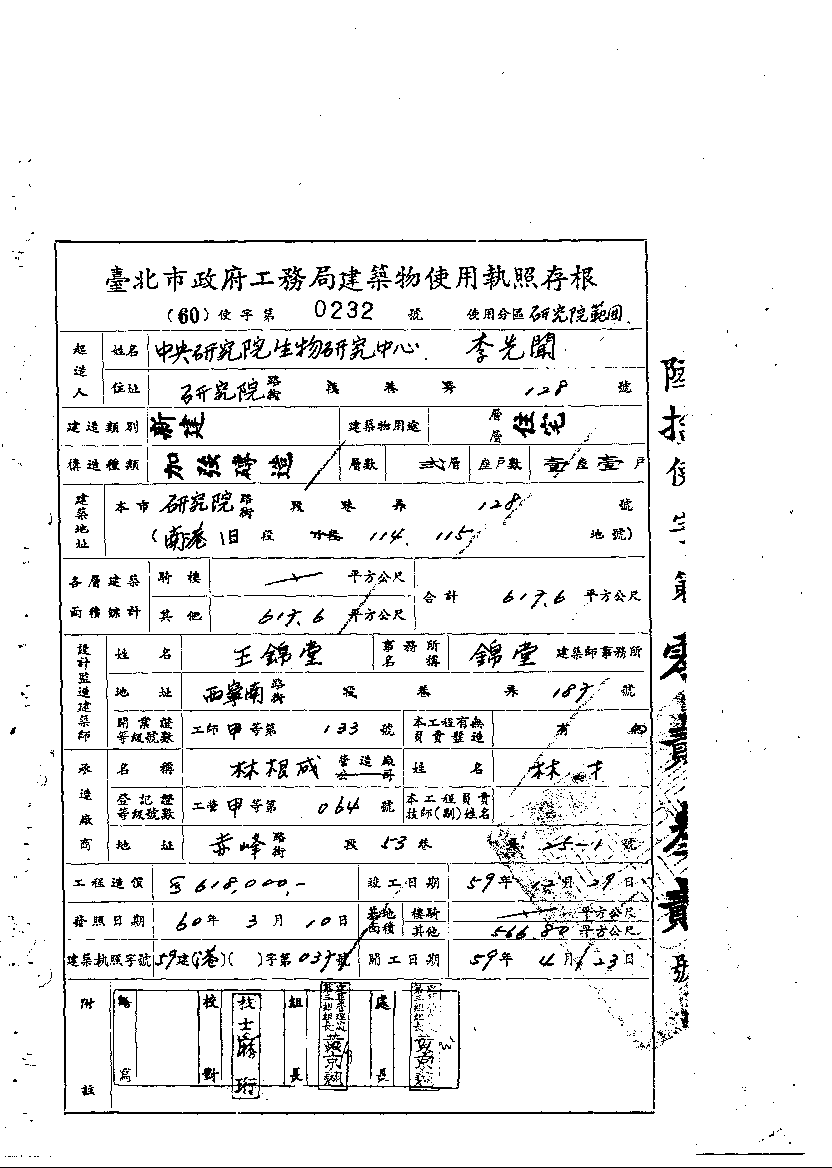 臺北市政府工務局建築物使用執照存根
(60) 使字第 0232 號 使用分區 研究院範圍
起造人 姓名 中央研究院生物研究中心 李先聞
住址 研究院 路街 段 巷 弄 128 號
建造類別 新建 建築物用途 層層 住宅
構造種類 加強磚造 層數 弍層 座戶數 壹座壹戶
建築地址 本市 研究院 路街 段 巷 弄 128 號
(南港旧段 114. 115 地號)
各層建築面積總計 騎樓 平方公尺
其他 617.6 平方公尺 合計 617.6 平方公尺
設計監造建築師 姓名 王錦堂 事務所名稱 錦堂 建築師事務所
地址 西寧南 路街 段 巷 弄 187 號
開業證等級號數 工師甲等第 133 號 本工程有無負責監造 有
承造廠商 名稱 林根成 營造廠公司 姓名 林
登記證等級號數 工營甲等第 064 號 本工程負責技師(副)姓名
地址 赤峰 路街 段 53 巷 弄 25-1 號
工程造價 618,000.- 竣工日期 59年12月29日
發照日期 60年3月10日 基地面積 樓騎 平方公尺
其他 566.80 平方公尺
建築執照字號 59建(港)( )字第 號 開工日期 59年4月23日
附註 繕寫 校對 技士 組長 處長
陸拾使字第零貳叁貳號